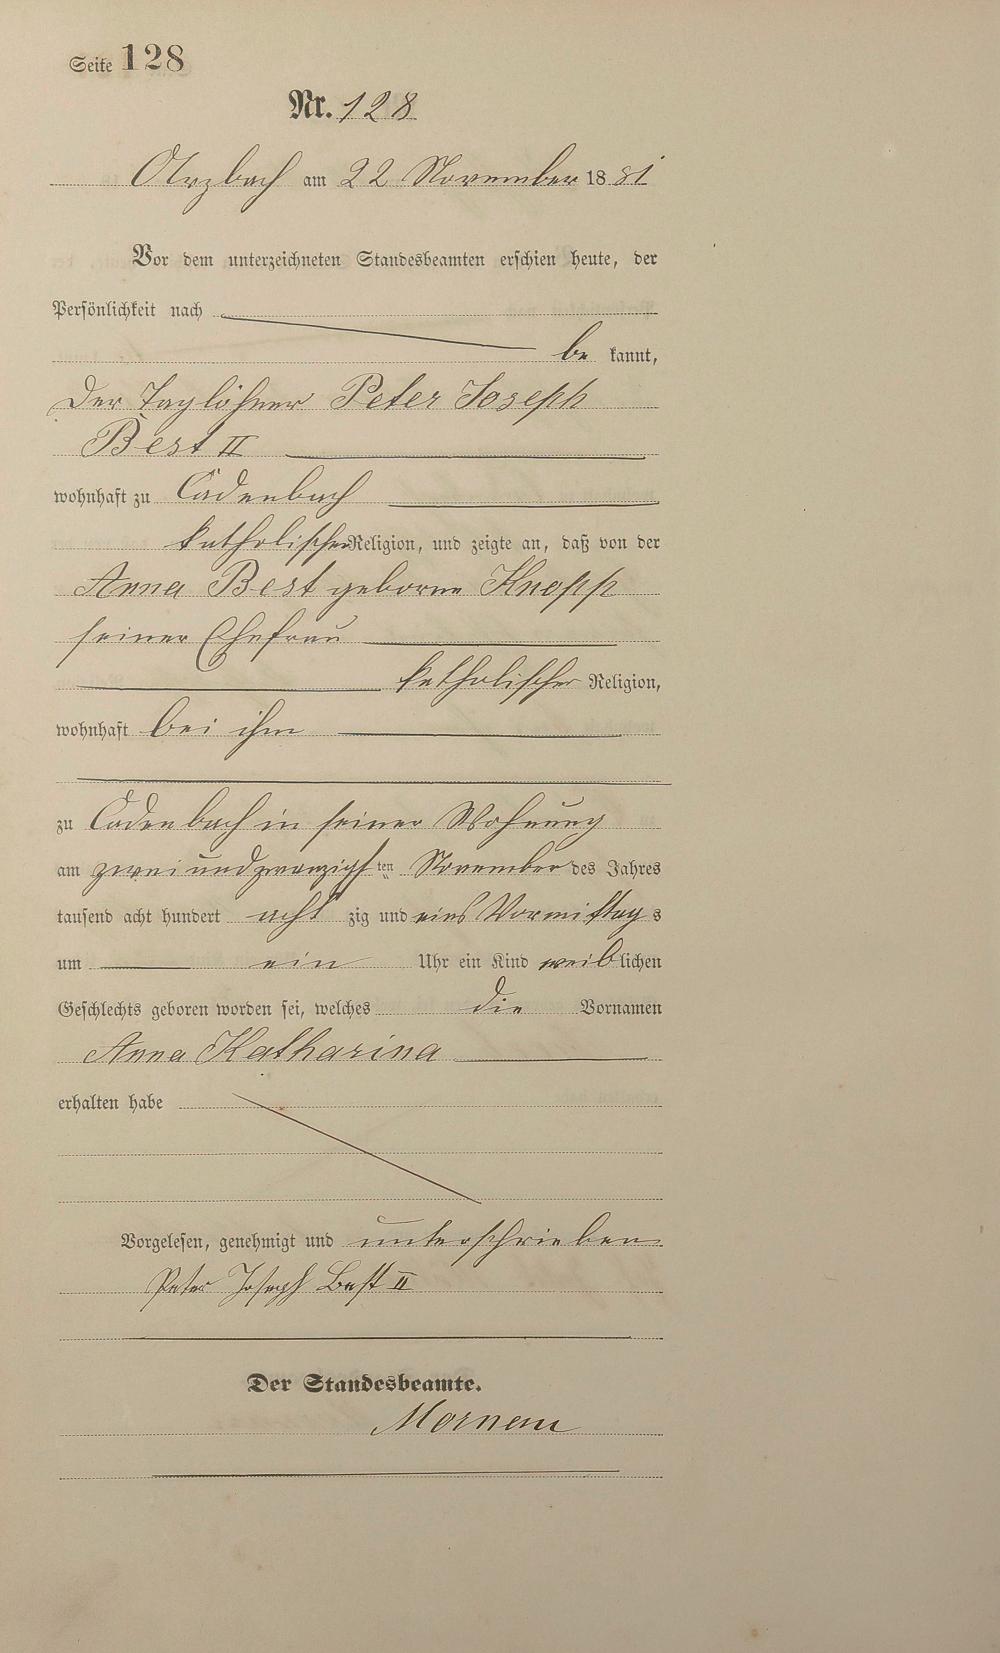 Seite 128
Nr. 128
Arzbach am 22 November 1881
Vor dem unterzeichneten Standesbeamten erschien heute, der
Persönlichkeit nach
be kannt,
der Taglöhner Peter Joseph
Best II
wohnhaft zu Cadenbach
katholischer Religion, und zeigte an, daß von der
Anna Best geborne Knopp
seiner Ehefrau
katholischer Religion,
wohnhaft bei ihm
zu Cadenbach in seiner Wohnung
am zwei und zwanzigsten November des Jahres
tausend acht hundert acht zig und eins Vormittags
um ein Uhr ein Kind weiblichen
Geschlechts geboren worden sei, welches die Vornamen
Anna Katharina
erhalten habe
Vorgelesen, genehmigt und unterschrieben
Peter Joseph Best II
Der Standesbeamte.
Mornau